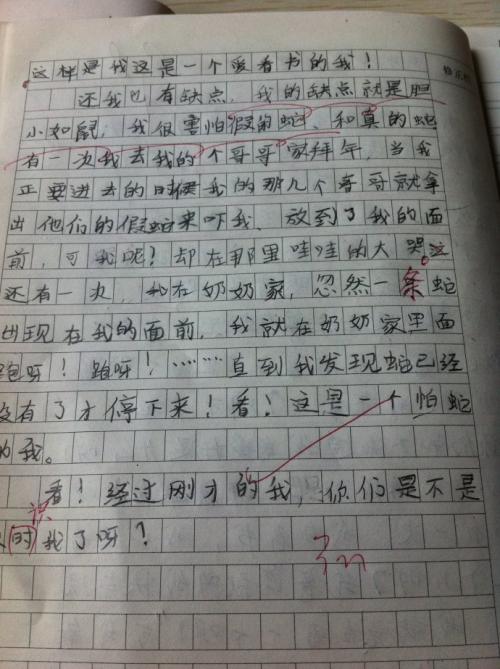 这样是我这是一个爱看书的我！
还我也有缺点，我的缺点就是胆
小如鼠，我很害怕假的蛇、和真的蛇
有一次我去我的个哥哥家拜年，当我
正要进去的时候我的那几个哥哥就拿
出他们的假蛇来吓我、放到了我的面
前，可我呢？却在那里哇哇的大哭。这
还有一次，我在奶奶家，忽然一条蛇
出现在我的面前，我就在奶奶家里面
跑呀！跑呀！……直到我发现蛇已经
没有了才停下来！看！这是一个怕蛇
的我。
看！经过刚才的我，你们是不是
识
时我了呀？